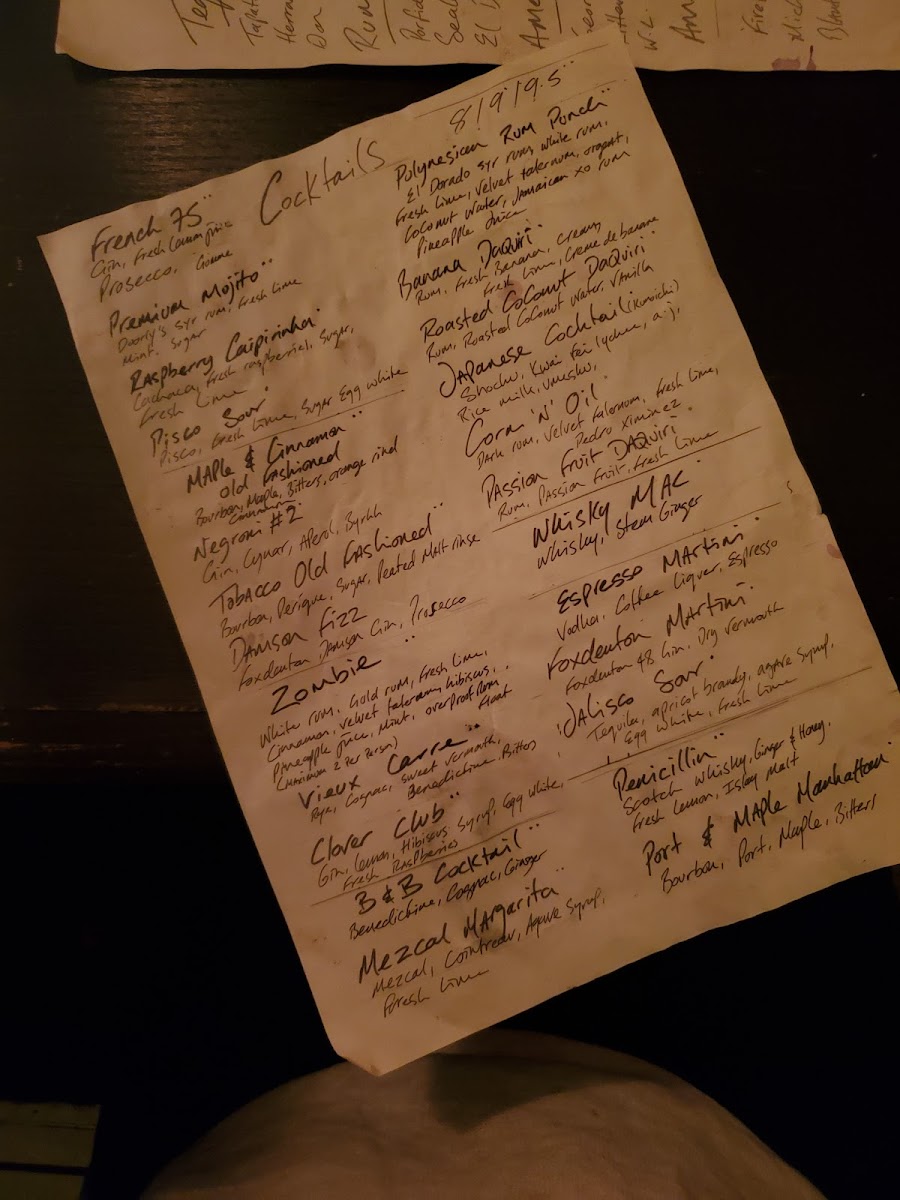 Cocktails 8/9/9.5¨
French 75¨
Gin, Fresh lemon juice
Prosecco, Gomme
Premium Mojito¨
Doorly's 5yr rum, Fresh lime
Mint. Sugar
Raspberry Caipirinha·
Cachaca, Fresh raspberries, Sugar,
Fresh Lime
Pisco Sour·
Pisco, Fresh Lime, Sugar Egg White
MAPle & Cinnamon¨
Old Fashioned
Bourbon, Maple, Bitters, orange rind
Cinnamon
Negroni #2
Gin, Cynar, Aperol, Byrhh
Tobacco Old Fashioned¨
Bourbon, Perique, Sugar, Peated Malt rinse
DAMSON Fizz
Foxdenton Damson Gin, Prosecco
Zombie¨
White rum, Gold rum, Fresh Lime,
Cinnamon, velvet falernum, hibiscus,
Pineapple juice, Mint, overproof rum
(MAXIMUM 2 Per Person)
Vieux Carre¨
Rye, Cognac, Sweet Vermouth,
Benedictine, Bitters
Clover Club¨
Gin, Lemon, Hibiscus Syrup, Egg White,
Fresh Raspberries
B & B Cocktail¨
Benedictine, Cognac, Ginger
Mezcal Margarita¨
Mezcal, Cointreau, Agave Syrup,
Fresh Lime
Polynesian Rum Punch¨
El Dorado 5yr rum, white rum,
Fresh Lime, Velvet falernum, orgeat,
Coconut Water, Jamaican XO rum
Pineapple Juice
Banana Daquiri¨
Rum, Fresh Banana, Creamy
Fresh Lime, Creme de banane
Roasted Coconut Daquiri¨
Rum, Roasted Coconut Water, Vanilla
Japanese Cocktail (Kunoichi)
Shochu, Kwai Fei lychee, a.j.,
Rice milk, Umeshu,
Corn 'N' Oil
Dark rum, Velvet falernum, Fresh Lime,
Pedro Ximinez
Passion Fruit Daquiri·
Rum, Passion Fruit, Fresh Lime
Whisky MAC
Whisky, Stem Ginger
Espresso Martini·
Vodka, Coffee Liquer, Espresso
Foxdenton Martini¨
Foxdenton 48 Gin, Dry Vermouth
Jalisco Sour·
Tequila, apricot brandy, agave Syrup,
Egg White, Fresh Lime
Penicillin¨
Scotch Whisky, Ginger & Honey,
Fresh Lemon, Islay Malt
Port & Maple Manhattan¨
Bourbon, Port, Maple, Bitters